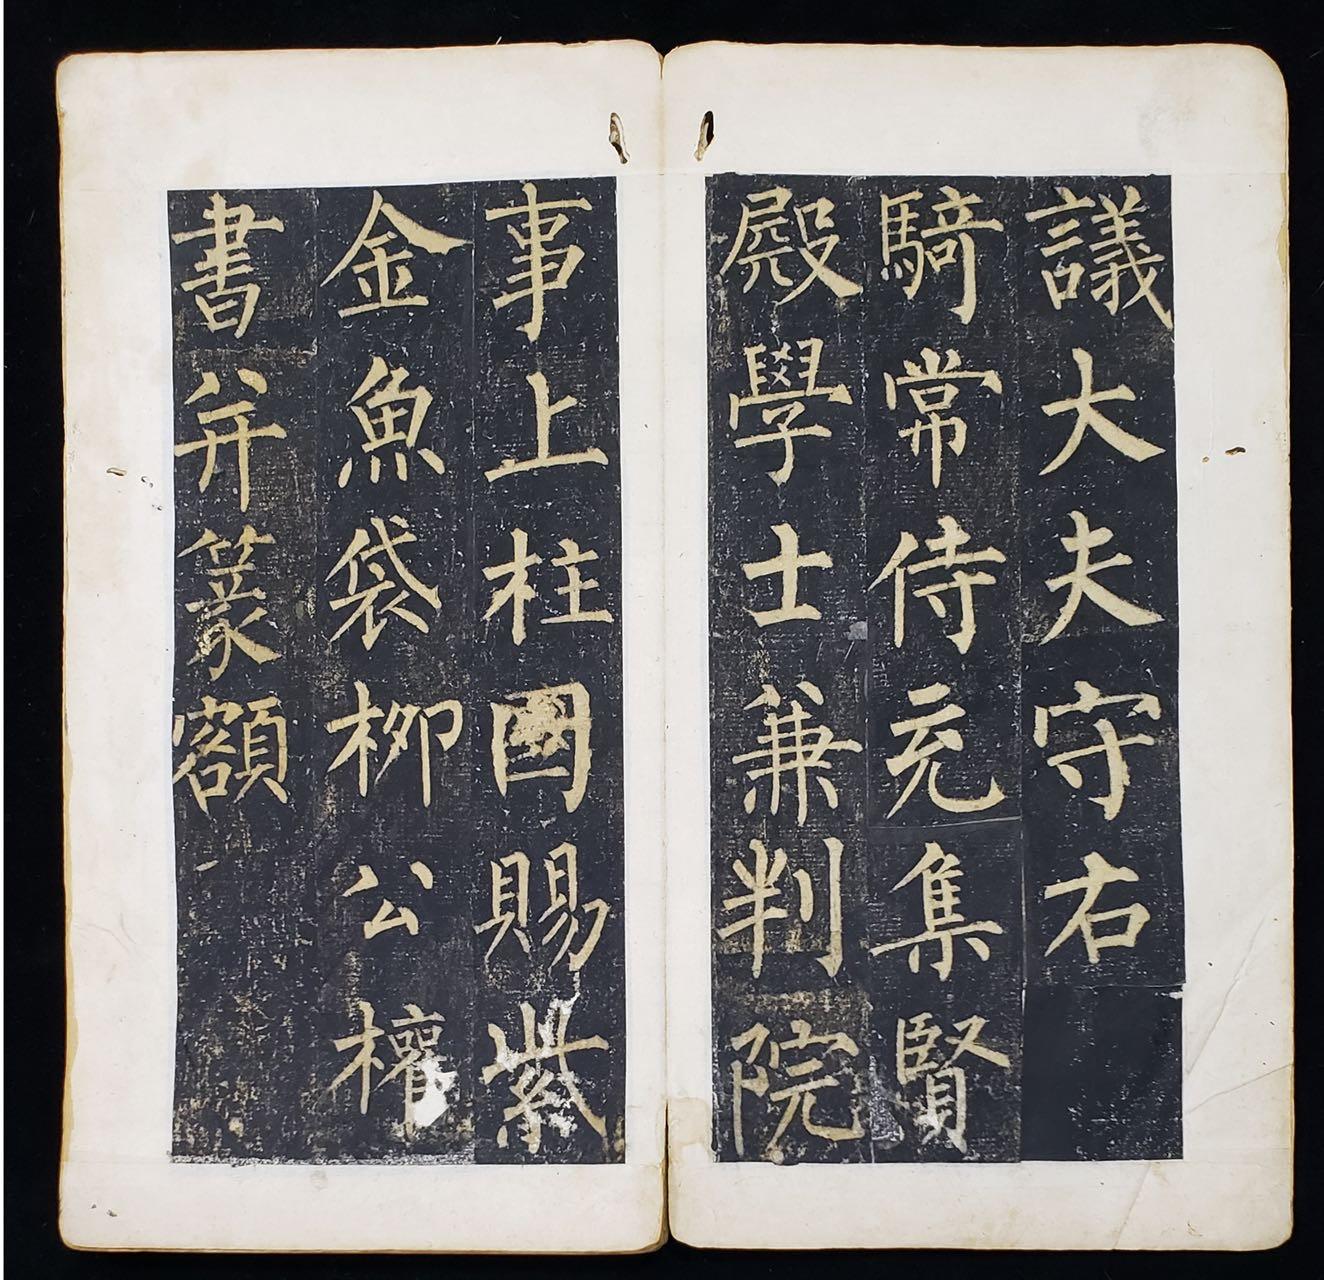 議大夫守右
騎常侍充集賢
殿學士兼判院
事上柱國賜紫
金魚袋柳公權
書并篆額